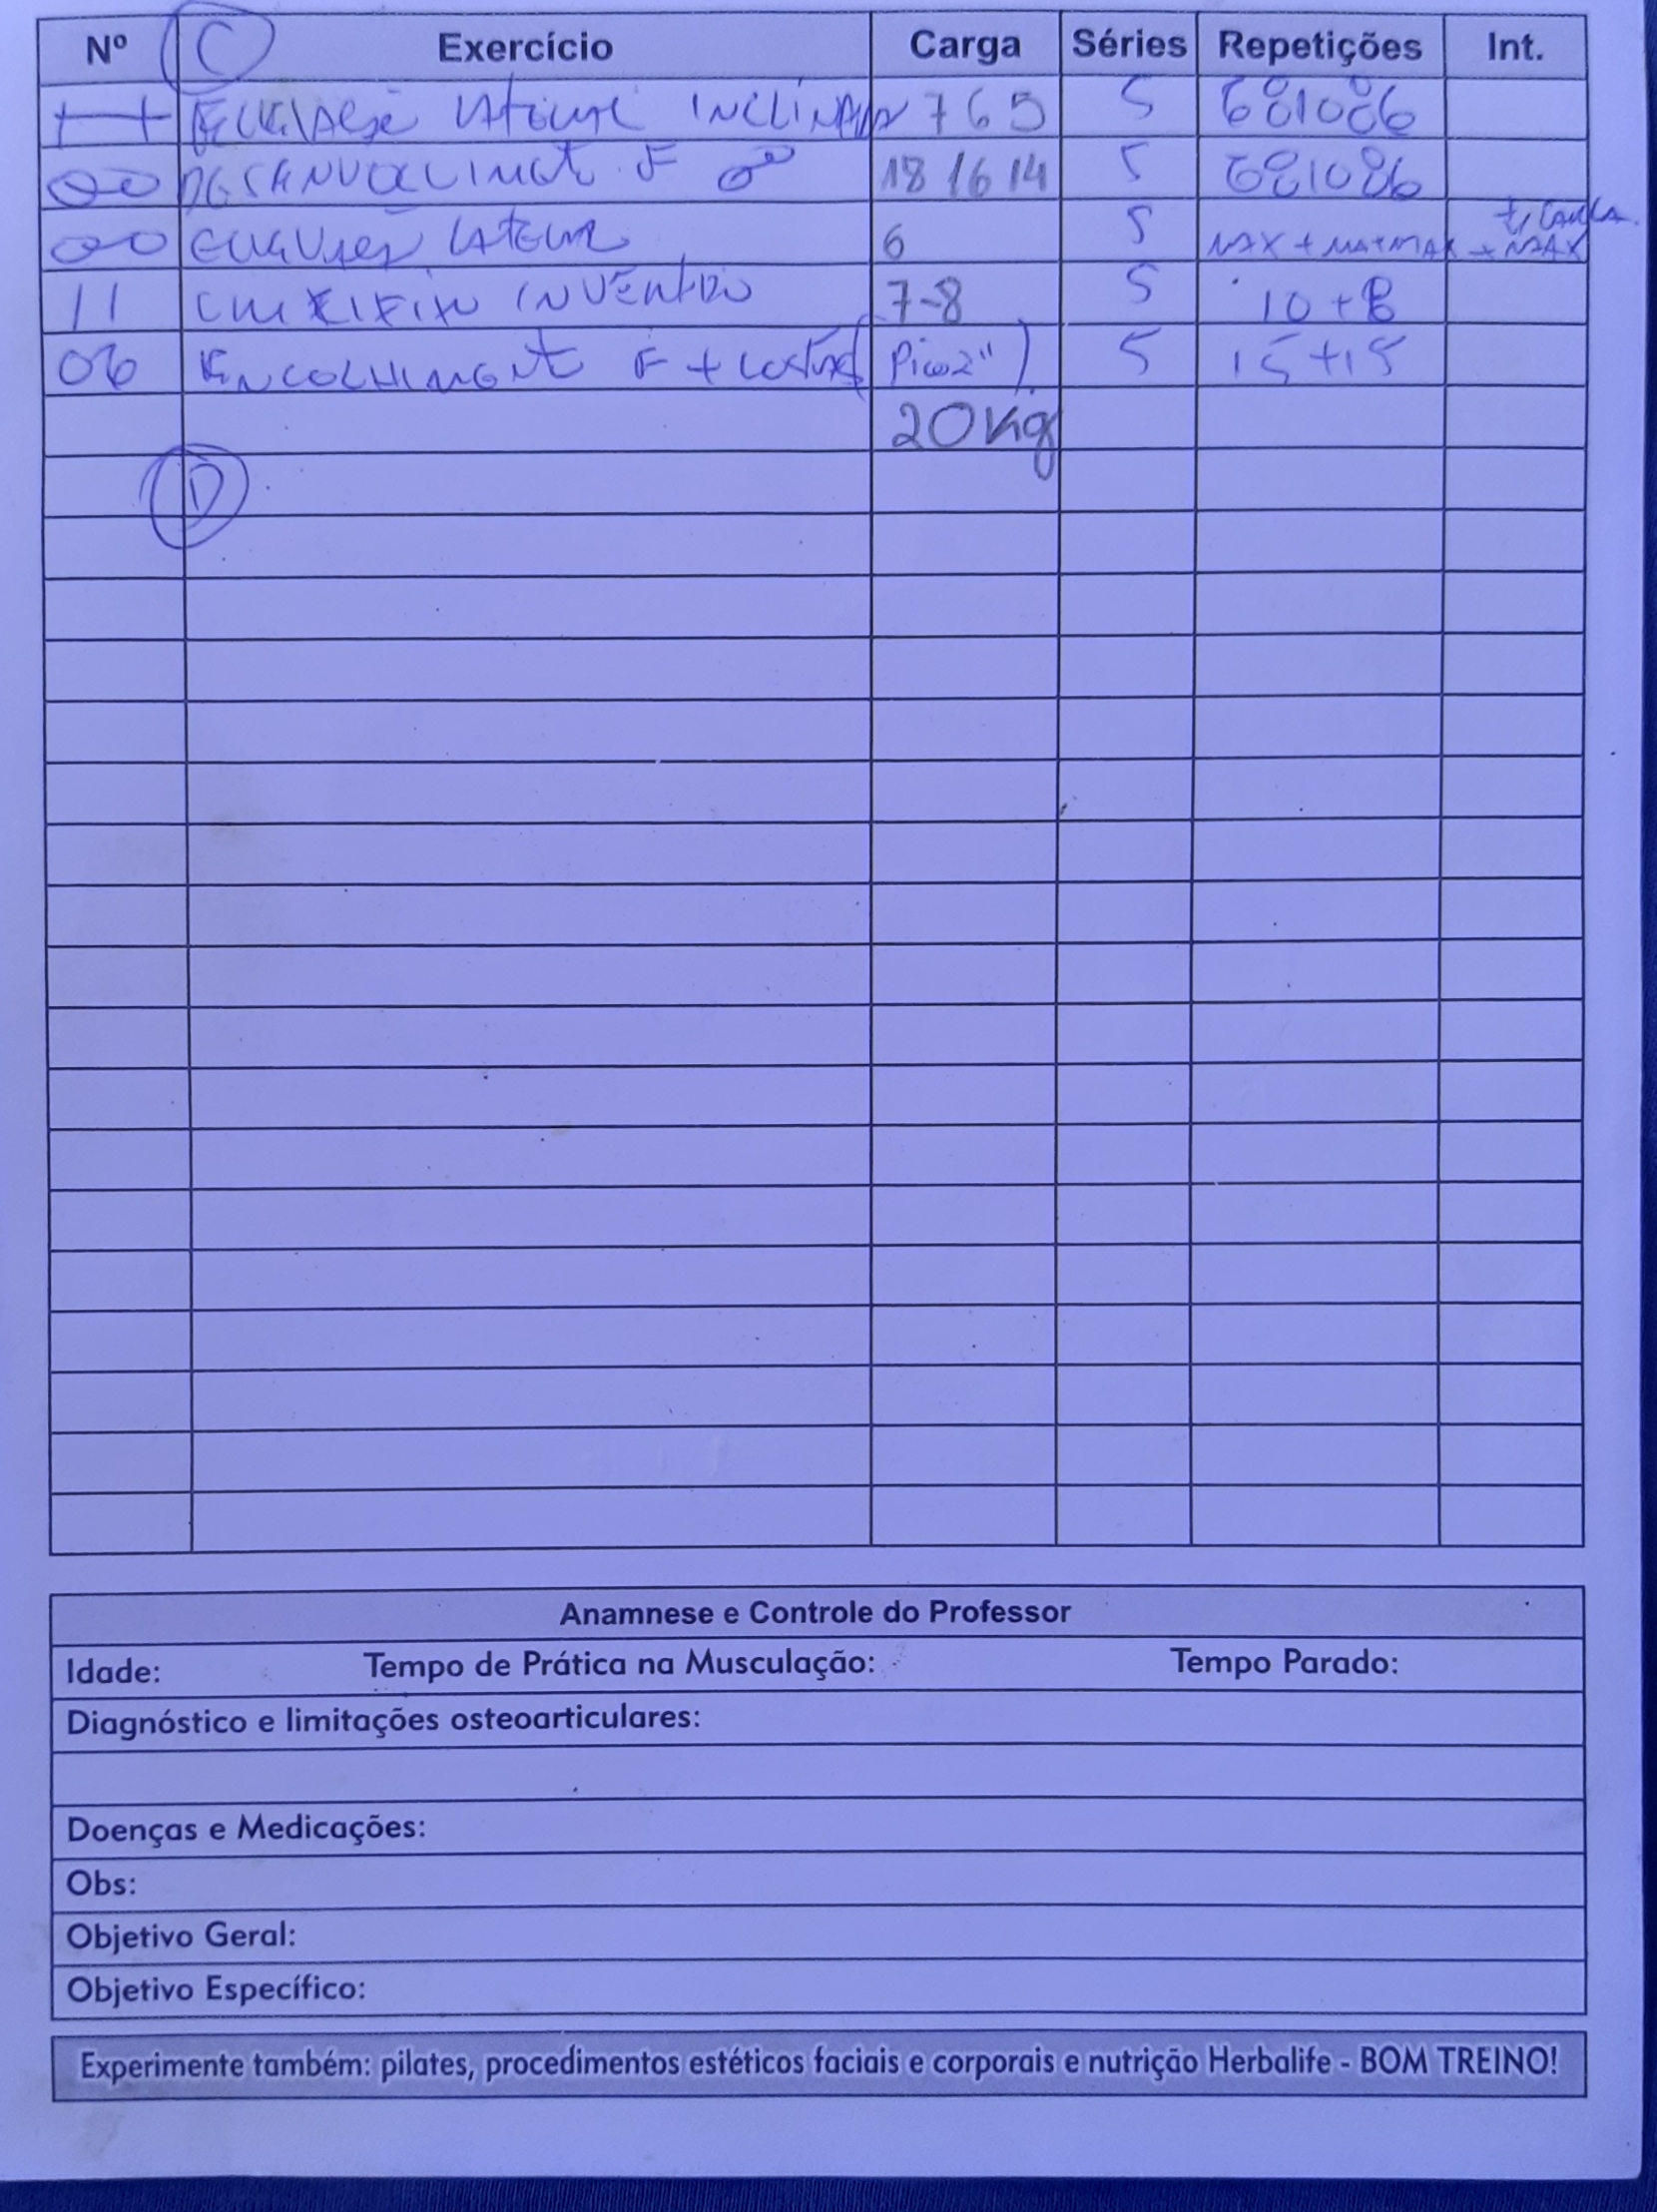 Nº C Exercício Carga Séries Repetições Int.
LATERAL INCLINADA 7 6 5 5 6 8 10 8 6
DESENVOLVIMENTO F 18 16 14 5 6 8 10 8 6
ELEVAÇÃO LATERAL 6 5 MAX + MAX + MAX + MAX
11 CRUCIFIXO INVERTIDO 7-8 5 10 + 8
06 ENCOLHIMENTO F + COSTAS (Pico 2") 5 15 + 15
20 Kg
D
Anamnese e Controle do Professor
Idade: Tempo de Prática na Musculação: Tempo Parado:
Diagnóstico e limitações osteoarticulares:
Doenças e Medicações:
Obs:
Objetivo Geral:
Objetivo Específico:
Experimente também: pilates, procedimentos estéticos faciais e corporais e nutrição Herbalife - BOM TREINO!